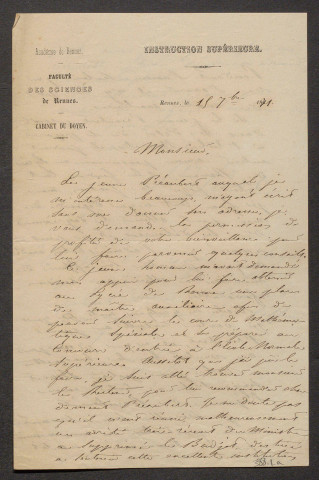 Académie de Rennes.
FACULTÉ
DES SCIENCES
de Rennes.
CABINET DU DOYEN.
INSTRUCTION SUPÉRIEURE.
Rennes, le 15 7bre 1871.
Monsieur,
Le jeune auquel je
m'intéresse beaucoup, m'ayant écrit
sans me donner son adresse, je
vous demande la permission de
profiter de votre bienveillance pour
lui faire parvenir quelques conseils.
Ce jeune homme m'avait demandé
mon appui pour lui faire obtenir
au Lycée de Rennes une place
de maître auxiliaire afin de
pouvoir suivre le cours de Mathéma-
tiques Spéciales et se préparer au
Concours d'entrée à l'École Normale
Supérieure. Aussitôt que j'ai pu le
faire, je suis allé trouver monsieur
le Recteur, pour lui recommander chau-
dement
qu'il avait réussi, malheureusement
un arrêté tout récent du Minist-
re supprime les